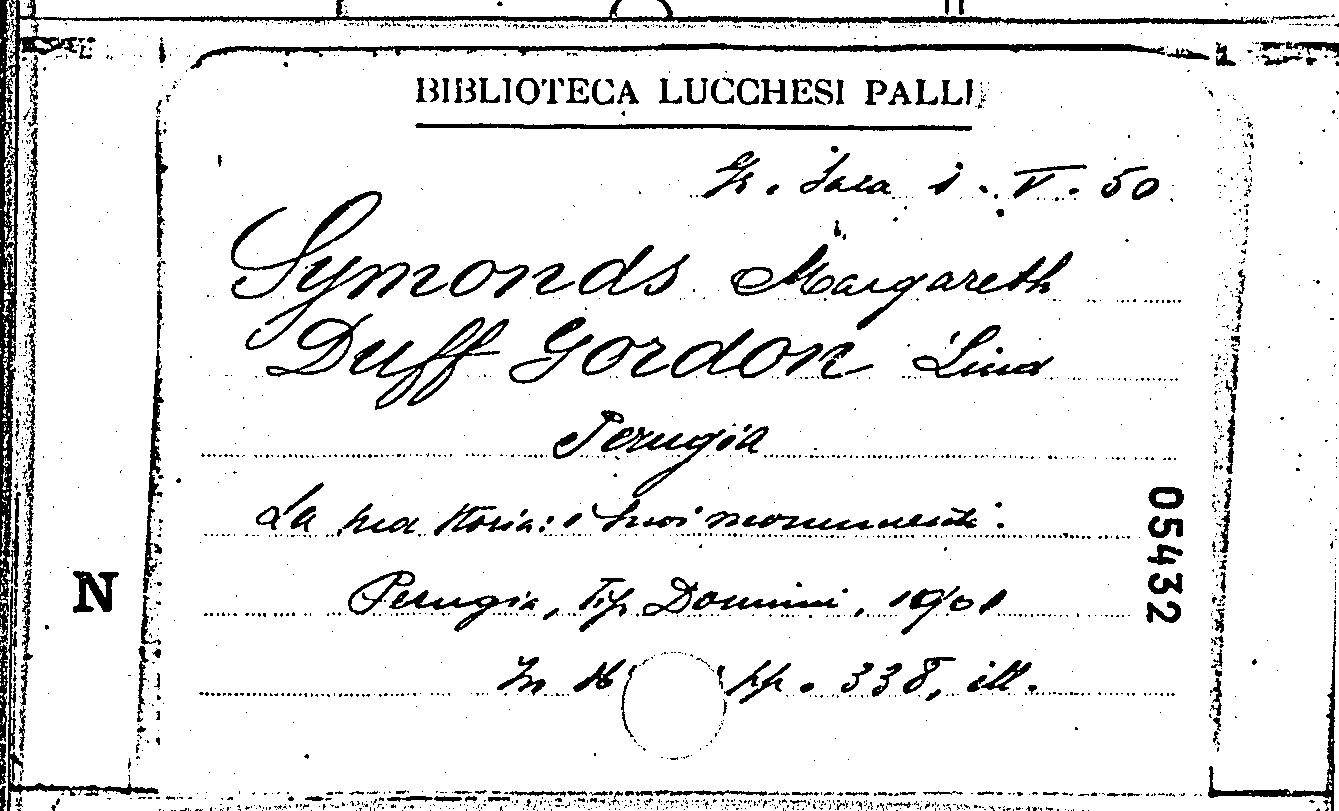 BIBLIOTECA LUCCHESI PALLI
Sala 1. V. 50
Symonds Margareth
Duff Gordon Lina
Perugia
La sua storia: i suoi monumenti.
Perugia, Tip. Domini, 1901
N
In 16 pp. 338, ill.
05432